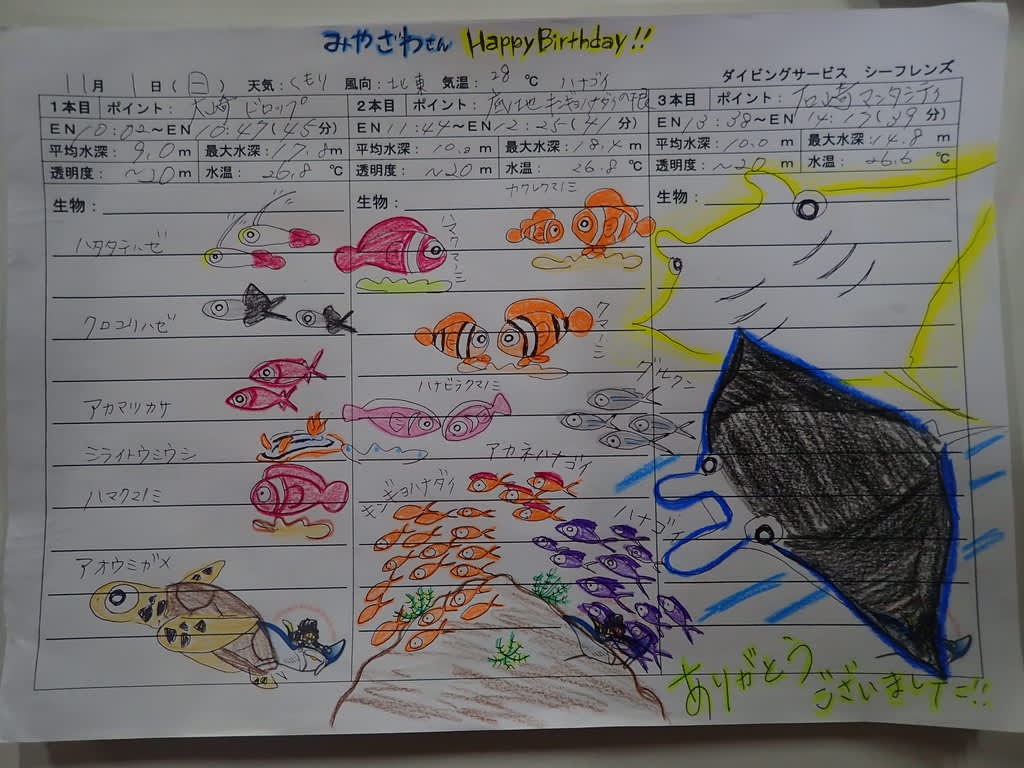 みやざわさん Happy Birthday!!
11月 1日(日) 天気:くもり 風向:北東 気温:28℃ ハナゴイ ダイビングサービス シーフレンズ
1本目 ポイント:大崎 ビロップ
EN 10:02～EN 10:47(45分)
平均水深:9.0m 最大水深:17.8m
透明度:～20m 水温:26.8℃
生物:
ハタタテハゼ
クロユリハゼ
アカマツカサ
ミライトウミウシ
ハマクマノミ
アオウミガメ
2本目 ポイント:底地キンギョハナダイの根
EN 11:44～EN 12:25(41分)
平均水深:10.2m 最大水深:18.4m
透明度:～20m 水温:26.8℃
生物:
カクレクマノミ
ハマクマノミ
クマノミ
ハナビラクマノミ
グルクン
アカネハナゴイ
キンギョハナダイ
ハナゴイ
3本目 ポイント:石崎マンタシティ
EN 13:38～EN 14:17(39分)
平均水深:10.0m 最大水深:14.8m
透明度:～20m 水温:26.6℃
生物:
ありがとう
ございました!!